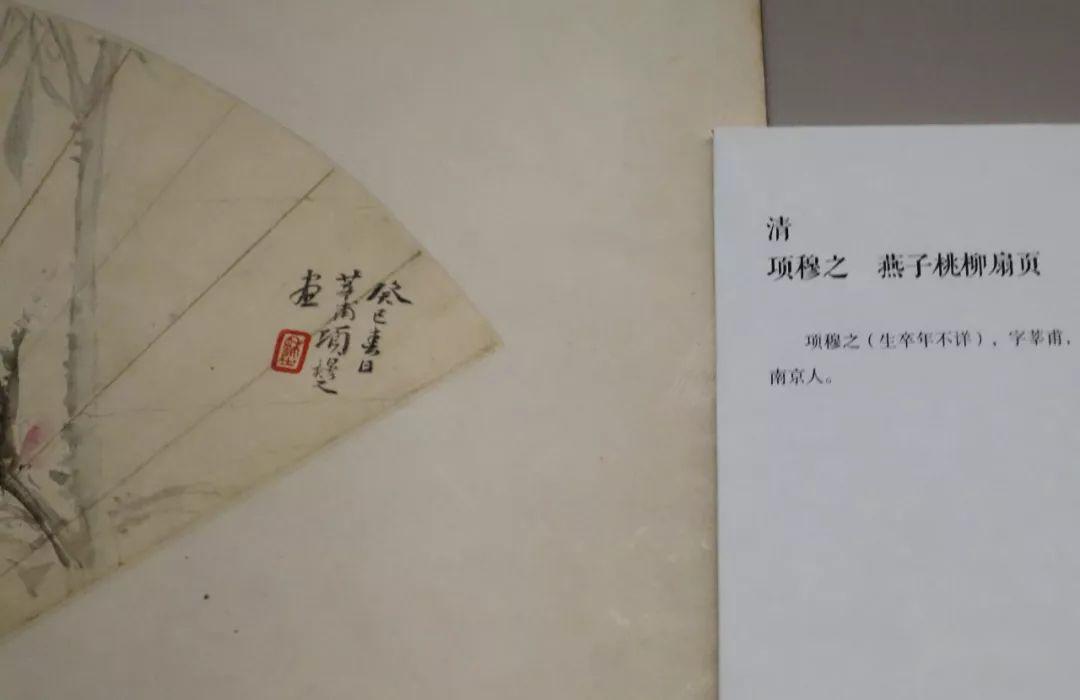 癸巳春日
莘甫項穆之
画
清
项穆之 燕子桃柳扇页
项穆之（生卒年不详），字莘甫，
南京人。